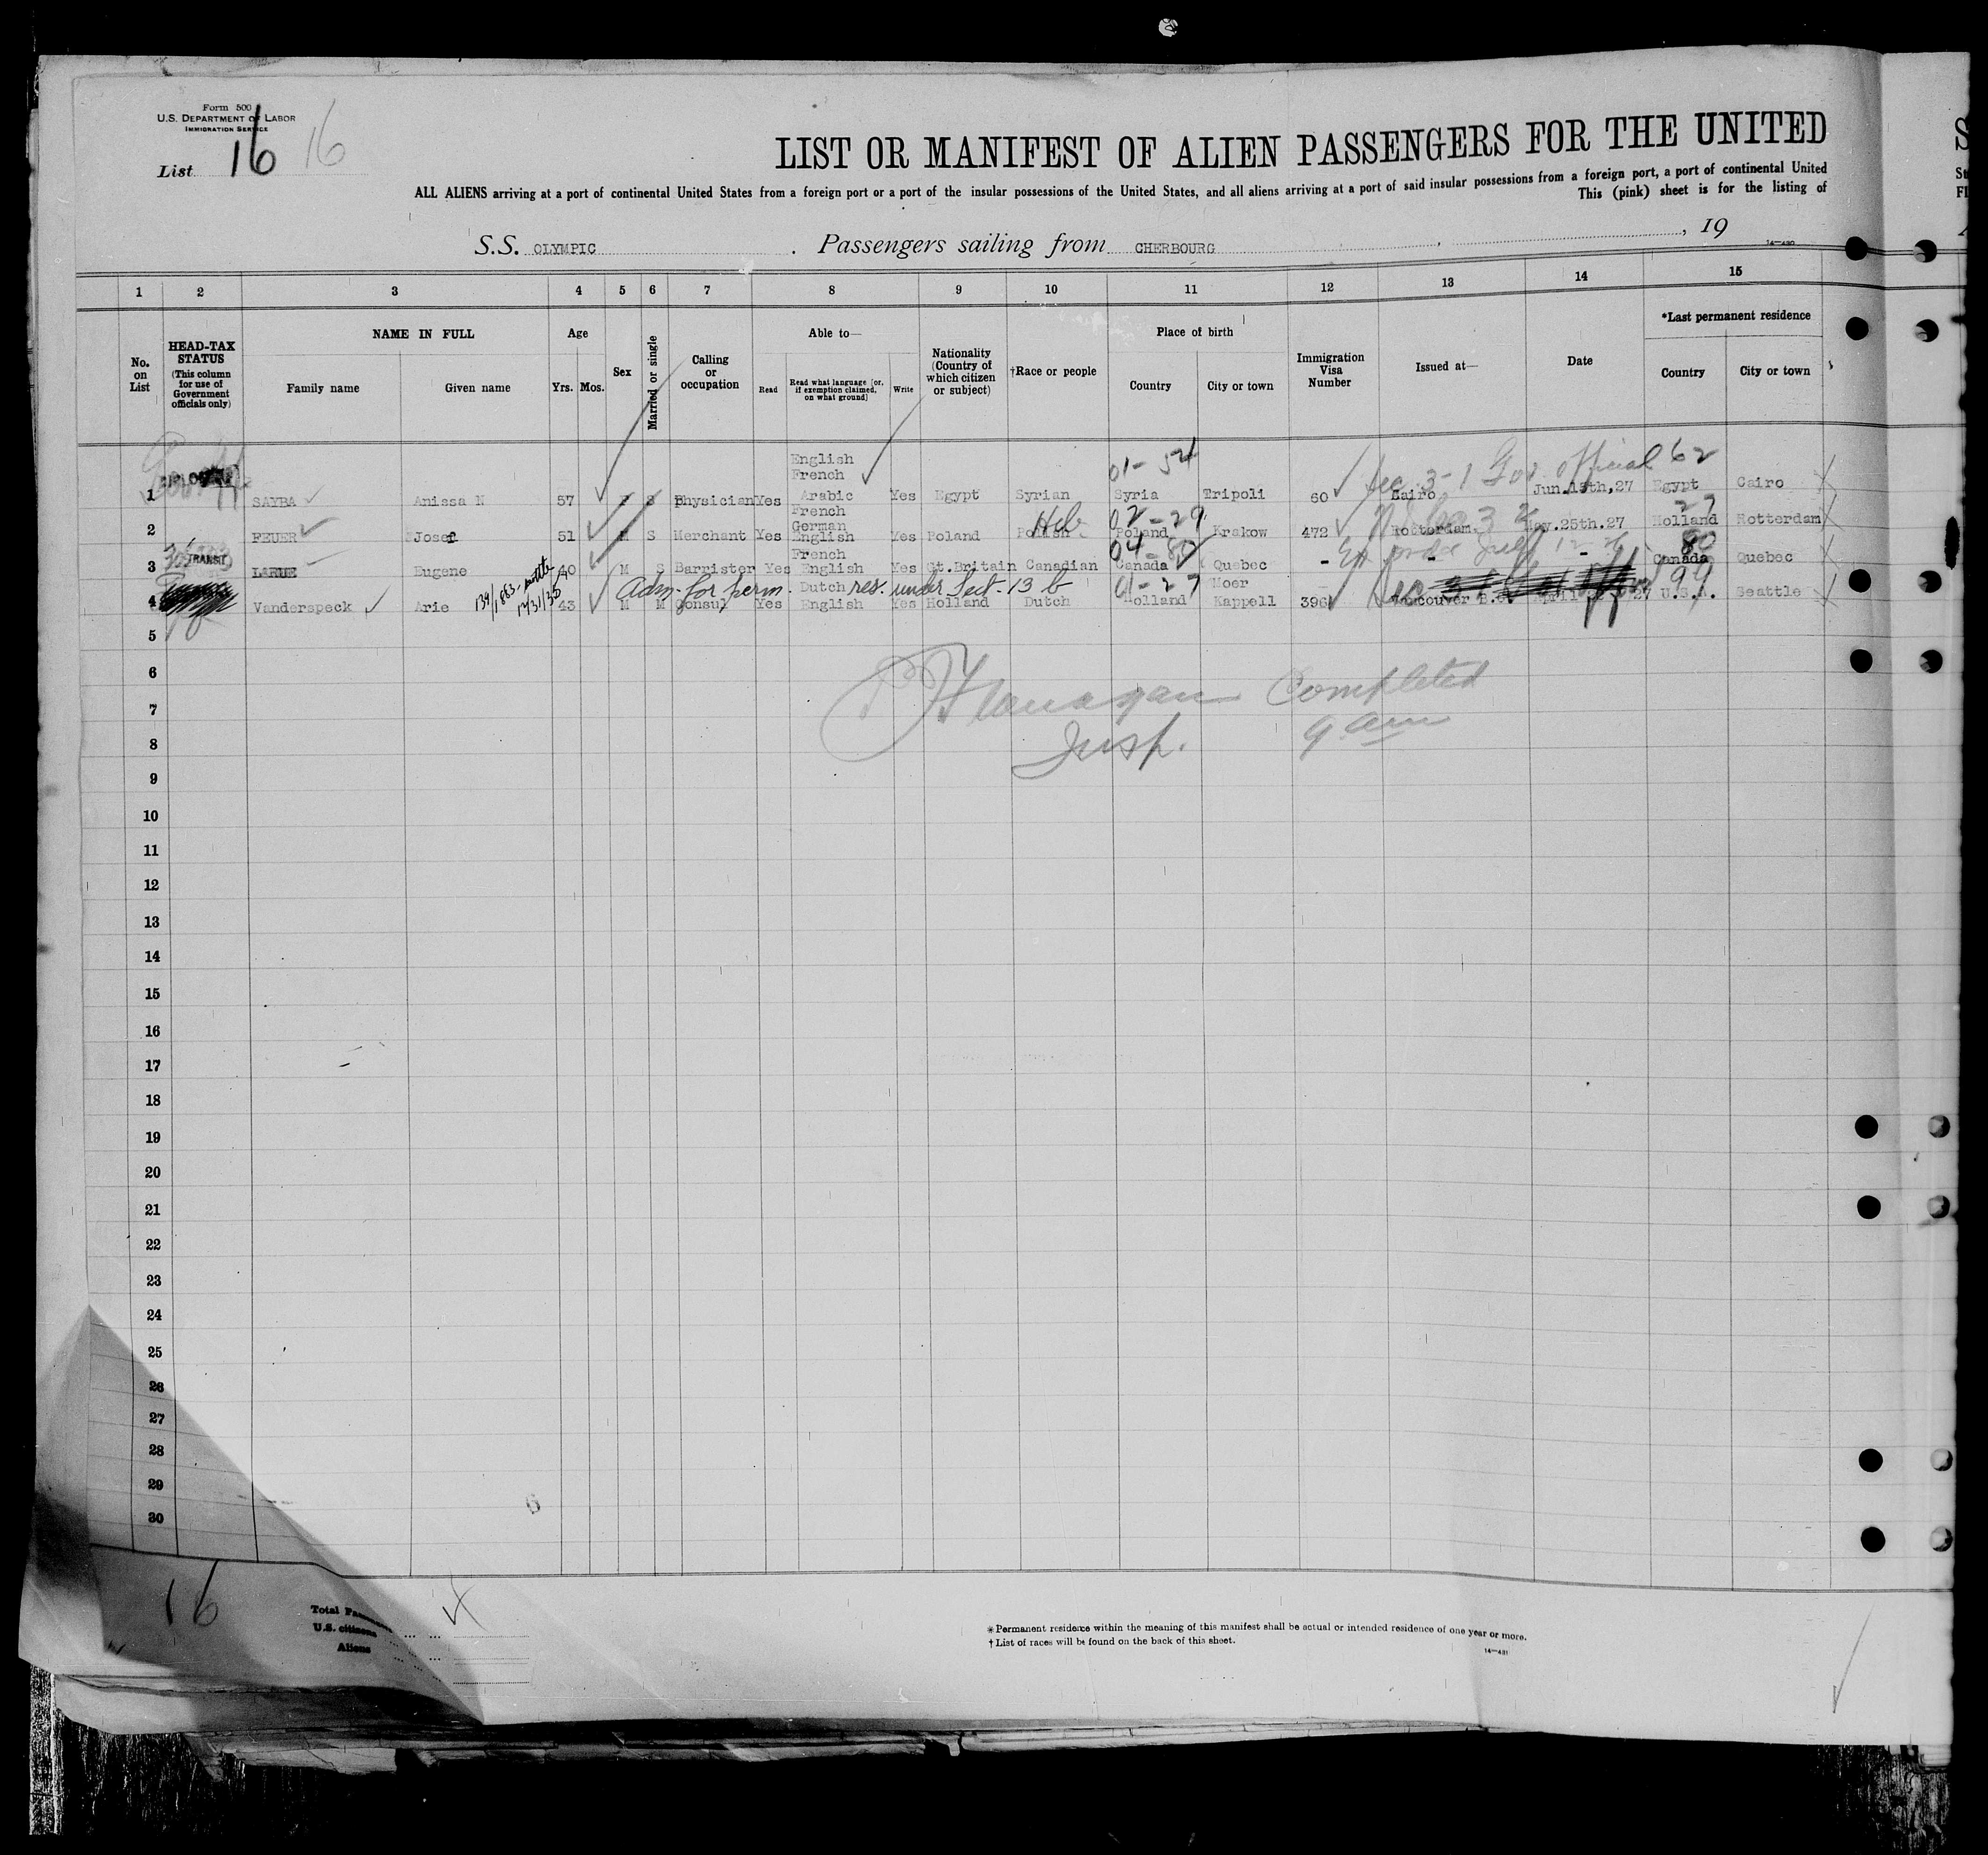 Form 500
U.S. DEPARTMENT OF LABOR
IMMIGRATION SERVICE
List 16 16
LIST OR MANIFEST OF ALIEN PASSENGERS FOR THE UNITED
ALL ALIENS arriving at a port of continental United States from a foreign port or a port of the insular possessions of the United States, and all aliens arriving at a port of said insular possessions from a foreign port, a port of continental United
This (pink) sheet is for the listing of
S.S. OLYMPIC . Passengers sailing from CHERBOURG , 19
14—480
1 2 3 4 5 6 7 8 9 10 11 12 13 14 15
No. on List
HEAD-TAX STATUS (This column for use of Government officials only)
NAME IN FULL
Family name Given name
Age
Yrs. Mos.
Sex
Married or single
Calling or occupation
Able to—
Read Read what language [or, if exemption claimed, on what ground] Write
Nationality (Country of which citizen or subject)
†Race or people
Place of birth
Country City or town
Immigration Visa Number
Issued at—
Date
*Last permanent residence
Country City or town
English
French 01-54 Sec. 3-1 Gov. official 62
1 SAYBA Anissa N 57 F S Physician Yes Arabic Yes Egypt Syrian Syria Tripoli 60 Cairo Jun.15th,27 Egypt Cairo
French
German Heb 02-29 27
2 FEUER Josef 51 M S Merchant Yes English Yes Poland Polish Poland Krakow 472 Rotterdam May.25th.27 Holland Rotterdam
TRANSIT French 04-80 80
3 LARUE Eugene 40 M S Barrister Yes English Yes Gt.Britain Canadian Canada Quebec - - - Canada Quebec
139/1883 Seattle 12/31/36 Adm. for perm. res. under Sect. 13 b
Dutch 01-27 Moer 99
4 Vanderspeck Arie 43 M M Consul Yes English Yes Holland Dutch Holland Kappell 396 Vancouver B.C. April 27 U.S.A. Seattle
5
6
7
8
9
10
11
12
13
14
15
16
17
18
19
20
21
22
23
24
25
26
27
28
29
30
Flanagan Completed
Insp. 9 am
6
16
Total
U.S. citizens
Aliens
*Permanent residence within the meaning of this manifest shall be actual or intended residence of one year or more.
†List of races will be found on the back of this sheet.
14—481